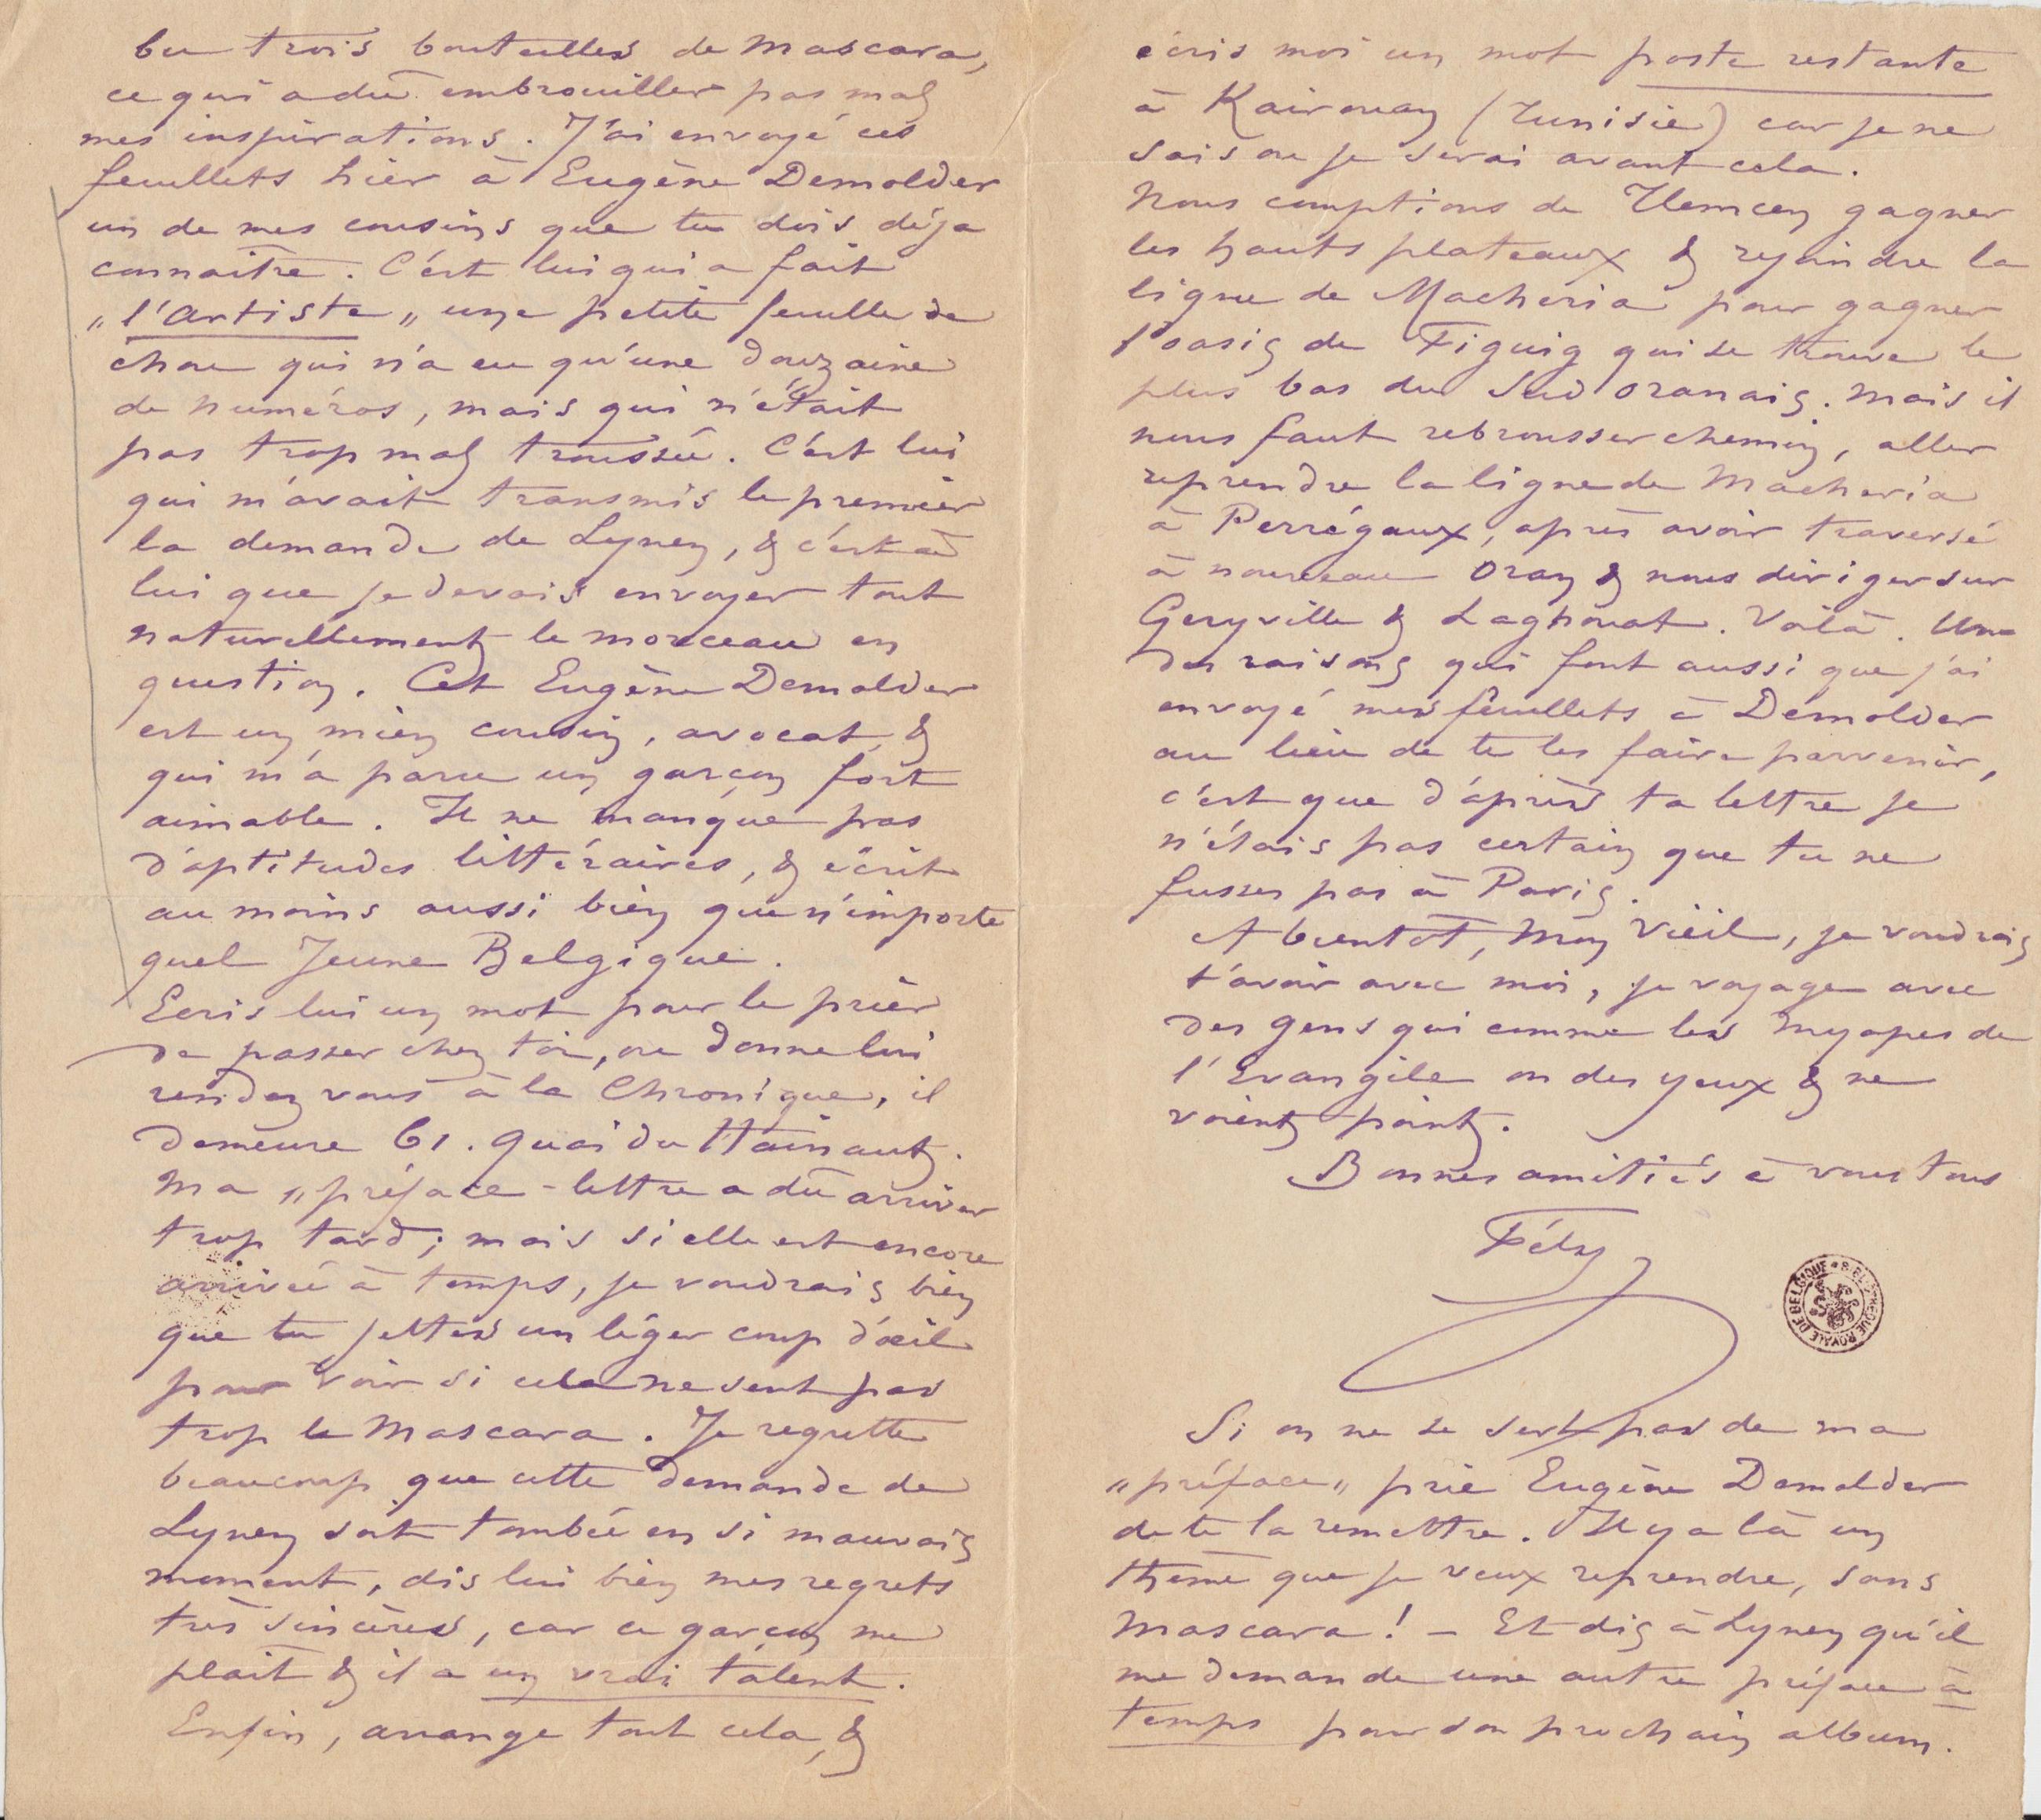 bu trois bouteilles de Mascara,
ce qui a dû embrouiller pas mal
mes inspirations. J'ai envoyé ces
feuillets hier à Eugène Demolder
un de mes cousins que tu dois déja
connaître. C'est lui qui a fait
„l'Artiste„ une petite feuille de
chou qui n'a eu qu'une douzaine
de numéros, mais qui n'était
pas trop mal troussée. C'est lui
qui m'avait transmis le premier
la demande de Lynen, & c'est à
lui que je devais envoyer tout
naturellement le morceau en
question. Cet Eugène Demolder
est un mien cousin, avocat &
qui m'a paru un garçon fort
aimable. Il ne manque pas
d'aptitudes littéraires, & écrit
au moins aussi bien que n'importe
quel Jeune Belgique.
Ecris lui un mot pour le prier
de passer chez toi, ou donne lui
rendez vous à la Chronique, il
demeure 61. Quai du Hainaut.
Ma „préface-lettre a dû arriver
trop tard; mais si elle est encore
arrivée à temps, je voudrais bien
que tu jettes un léger coup d'œil
pour voir si cela ne sent pas
trop le Mascara. Je regrette
beaucoup que cette demande de
Lynen soit tombée en si mauvais
moment, dis lui bien mes regrets
très sincères, car ce garçon me
plait & il a un vrai talent.
Enfin, arrange tout cela, &
écris moi un mot poste restante
à Kairouan (Tunisie) car je ne
sais ou je serai avant cela.
Nous comptions de Tlemcen gagner
les hauts plateaux & rejoindre la
ligne de Macheria pour gagner
l'oasis de Figuig qui se trouve le
plus bas du Sud oranais. Mais il
nous faut rebrousser chemin, aller
reprendre la ligne de Macheria
à Perrégaux, après avoir traversé
à nouveau Oran & nous diriger sur
Geryville & Laghouat. Voilà. Une
des raisons qui font aussi que j'ai
envoyé mes feuillets à Demolder
au lieu de te les faire parvenir,
c'est que d'après ta lettre je
n'étais pas certain que tu ne
fusses pas à Paris.
A bientôt, mon vieil, je voudrais
t'avoir avec moi, je voyage avec
des gens qui comme les myopes de
l'Evangile on des yeux & ne
voient point.
Bonnes amitiés à vous tous
Fély
BIBLIOTHEQUE ROYALE DE BELGIQUE
Si on ne se sert pas de ma
„préface„ prie Eugène Demolder
de te la remettre. Il y a là un
thème que je veux reprendre, sans
Mascara! – Et dis à Lynen qu'il
me demande une autre préface à
temps pour son prochain album.